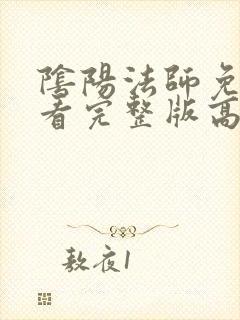 陰陽法師免
看完整版高
敖夜1